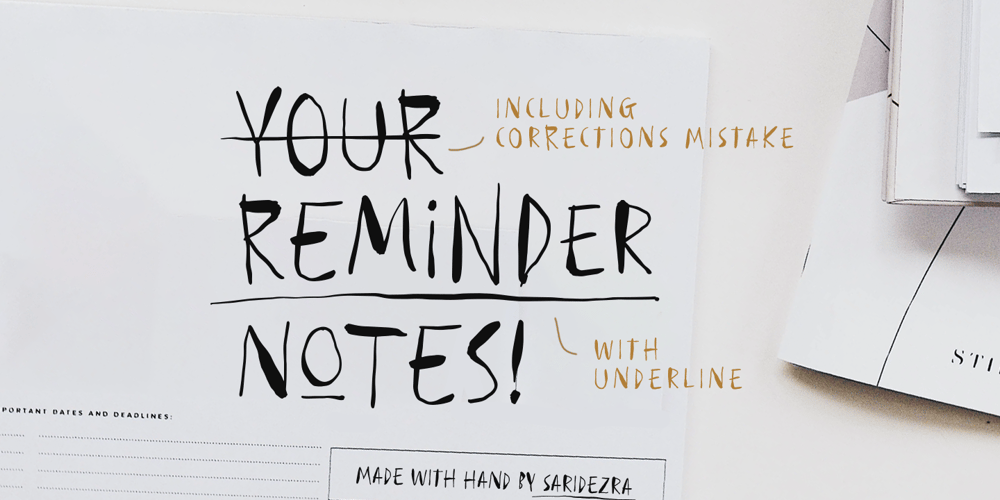 YOUR
INCLUDING
CORRECTIONS MISTAKE
REMINDER
NOTES!
WITH
UNDERLINE
PORTANT DATES AND DEADLINES:
MADE WITH HAND BY SARIDEZRA